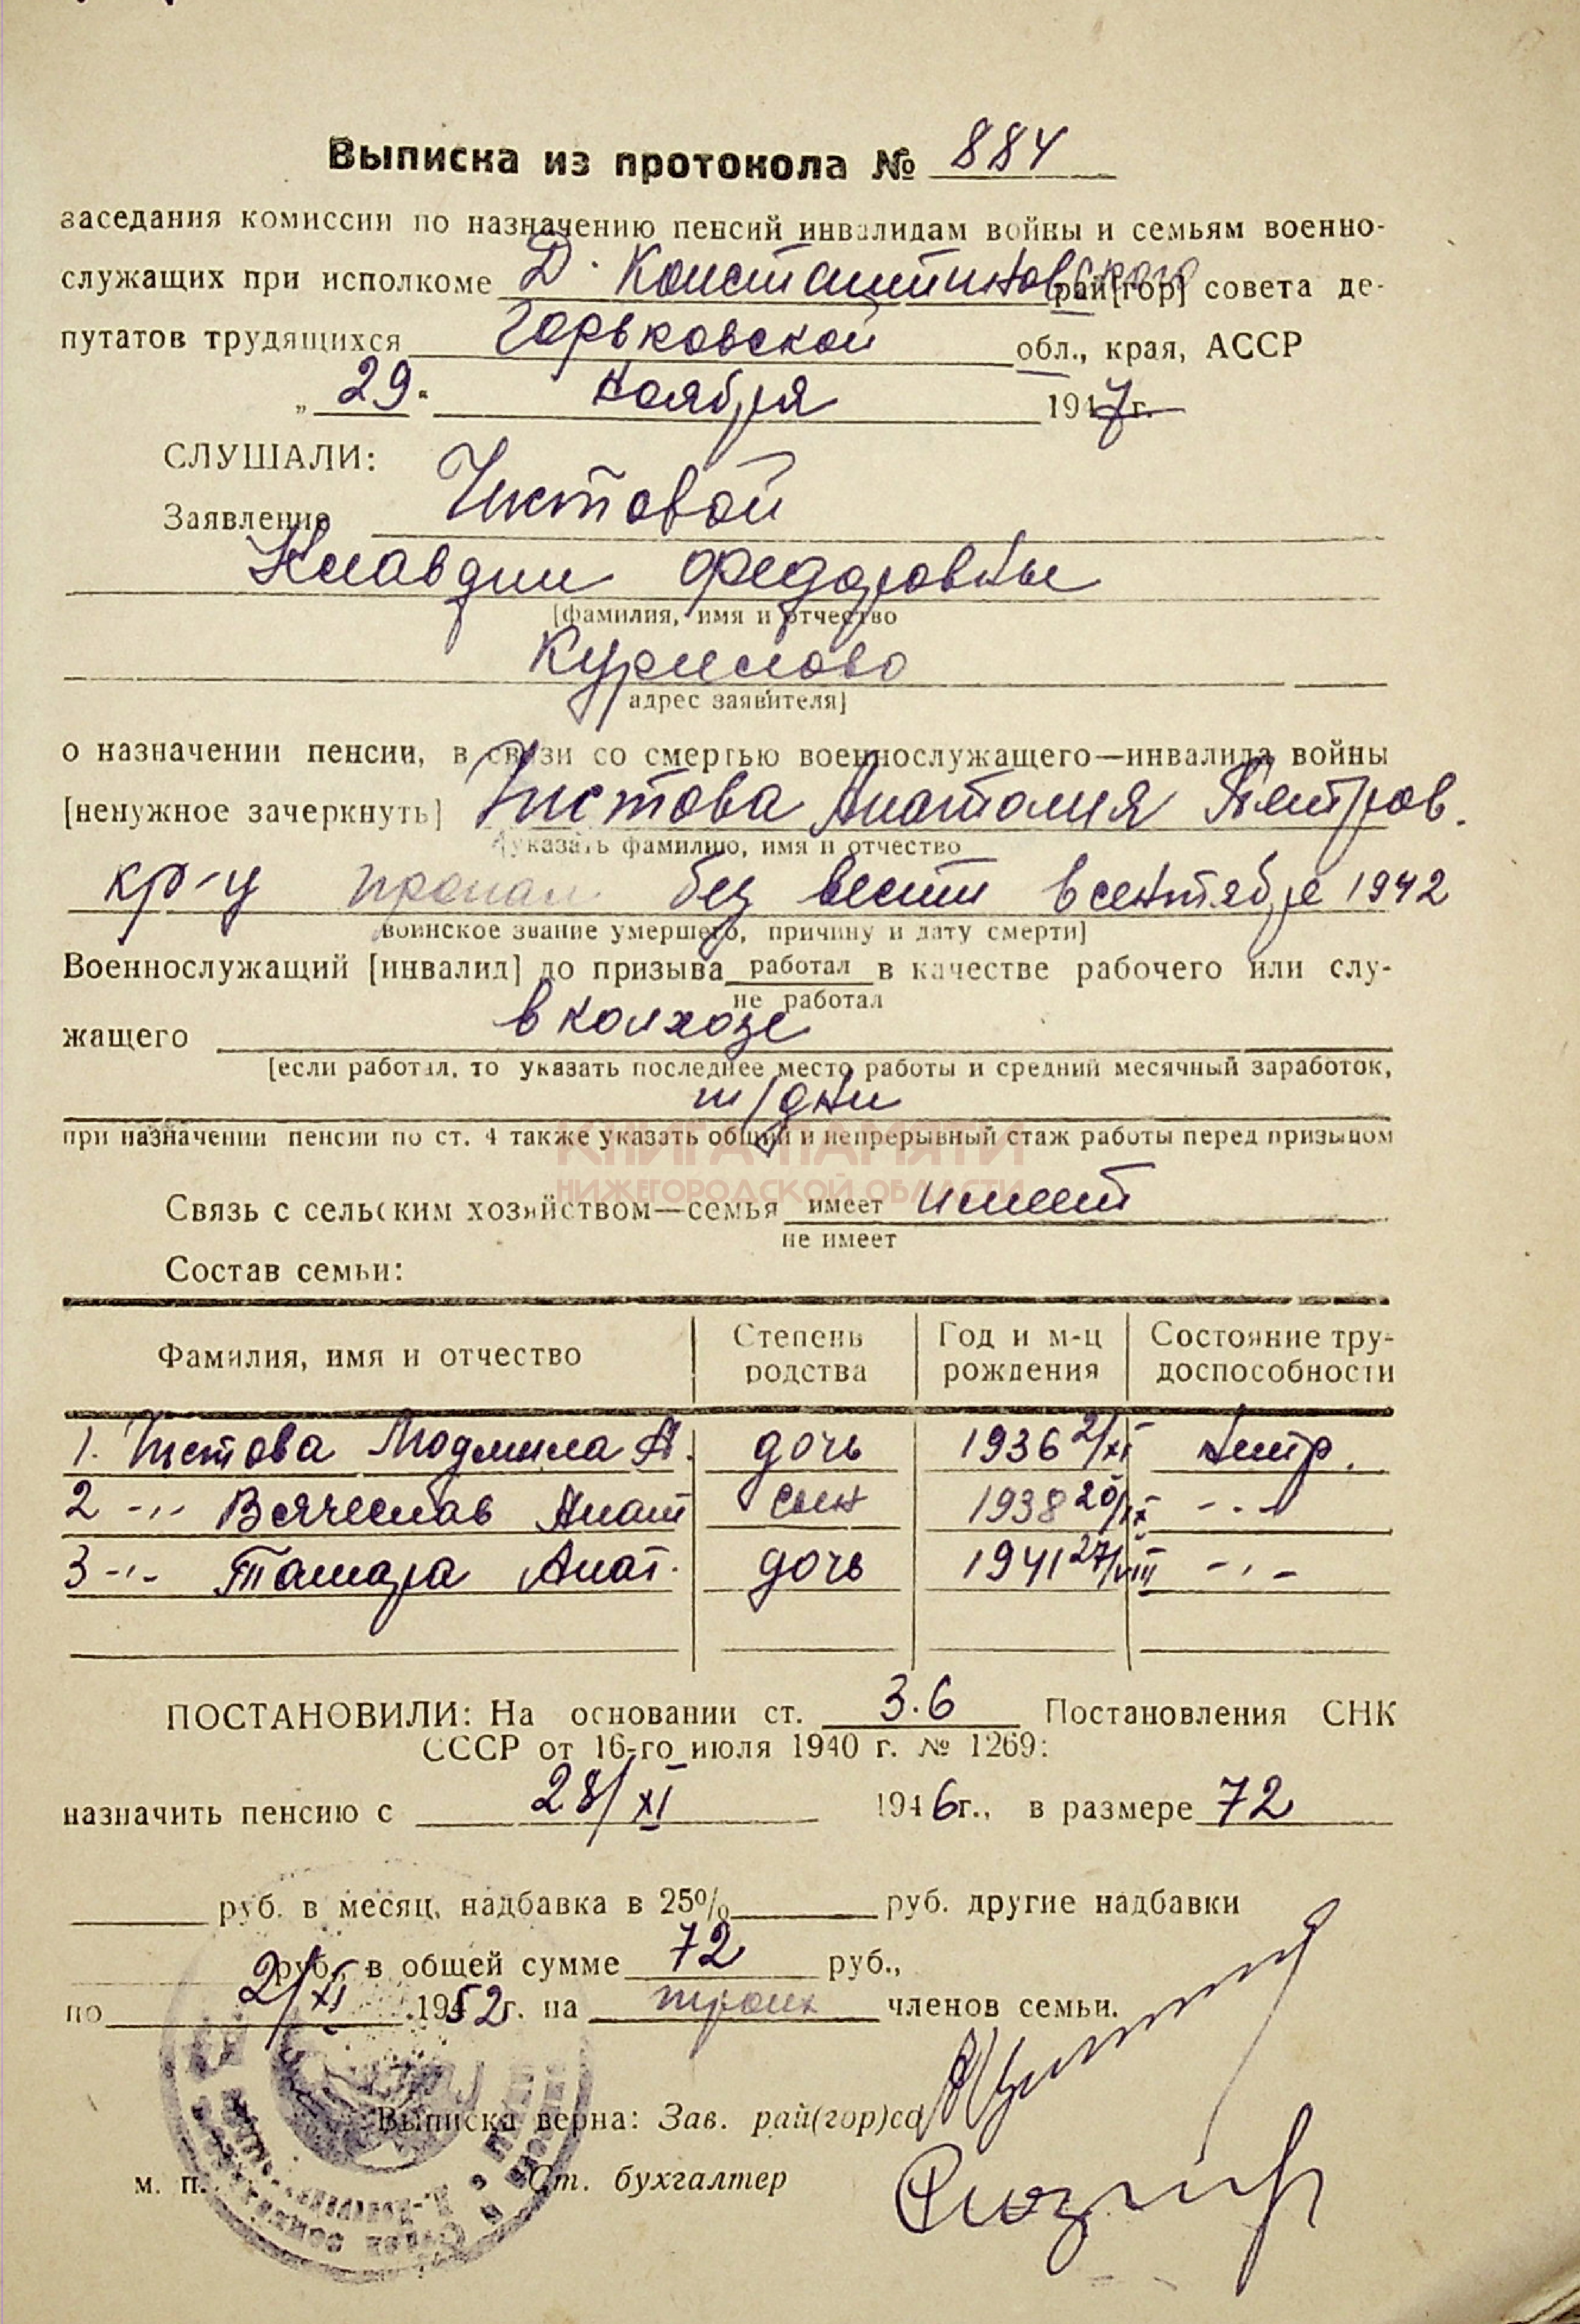 Выписка из протокола № 884
заседания комиссии по назначению пенсий инвалидам войны и семьям военно-
служащих при исполкоме Д. Константиновского рай[гор] совета де-
путатов трудящихся Горьковской обл., края, АССР
„ 29 " ноября 1947 г.
СЛУШАЛИ:
Заявление Чистовой
Клавдии Федоровны
[фамилия, имя и отчество
Курилово
адрес заявителя]
о назначении пенсии, в связи со смертью военнослужащего—инвалида войны
[ненужное зачеркнуть] Чистова Анатолия Петров.
[указать фамилию, имя и отчество
кр-ц пропал без вести в сентябре 1942
воинское звание умершего, причину и дату смерти]
Военнослужащий [инвалид] до призыва работал в качестве рабочего или слу-
не работал
жащего в колхозе
[если работал, то указать последнее место работы и средний месячный заработок,
т/дни
при назначении пенсии по ст. 4 также указать общий и непрерывный стаж работы перед призывом
КНИГА ПАМЯТИ
НИЖЕГОРОДСКОЙ ОБЛАСТИ
Связь с сельским хозяйством—семья имеет имеет
не имеет
Состав семьи:
Фамилия, имя и отчество Степень родства Год и м-ц рождения Состояние тру-доспособности
1. Чистова Людмила А. дочь 1936 2/XI нетр.
2 -"- Вячеслав Анат сын 1938 20/IX -"-
3 -"- Тамара Анат. дочь 1941 27/VIII -"-
ПОСТАНОВИЛИ: На основании ст. 3.6 Постановления СНК
СССР от 16-го июля 1940 г. № 1269:
назначить пенсию с 28/XI 1946 г., в размере 72
руб. в месяц, надбавка в 25% руб. другие надбавки
руб., в общей сумме 72 руб.,
по 2/XI 1952 г. на троих членов семьи.
Выписка верна: Зав. рай(гор)со
м. п. Ст. бухгалтер